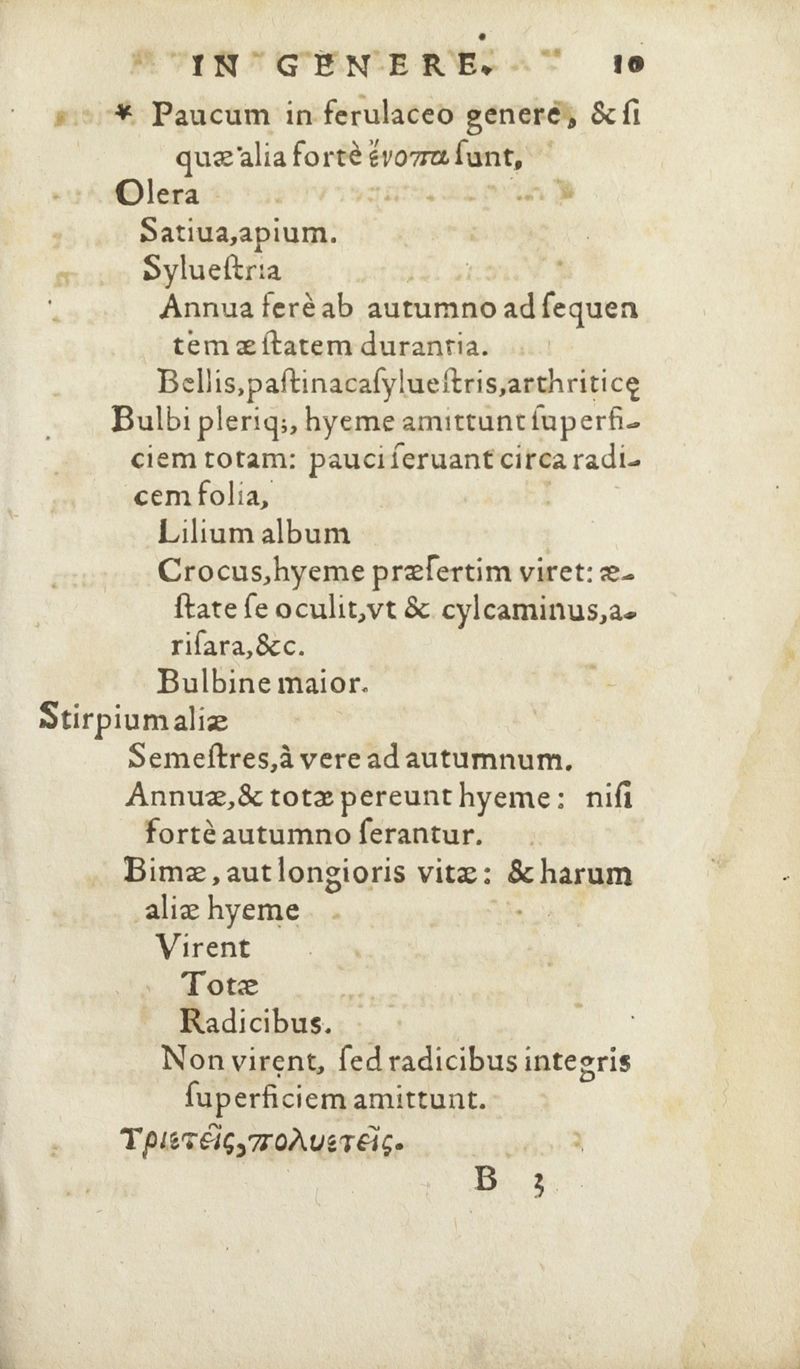 IN GENERE. 10
* Paucum in ferulaceo genere, & ſi
quæ alia fortè ἔνοπτα ſunt,
Olera
Satiua,apium.
Sylueſtria
Annua ferè ab autumno ad ſequen
tem æſtatem durantia.
Bellis,paſtinacaſylueſtris,arthriticę
Bulbi pleriq;, hyeme amittunt ſuperfi-
ciem totam: pauci ſeruant circa radi-
cem folia,
Lilium album
Crocus,hyeme præſertim viret: æ-
ſtate ſe oculit,vt & cylcaminus,a-
riſara,&c.
Bulbine maior.
Stirpium aliæ
Semeſtres,à vere ad autumnum.
Annuæ,& totæ pereunt hyeme: niſi
fortè autumno ſerantur.
Bimæ, aut longioris vitæ: & harum
aliæ hyeme
Virent
Totæ
Radicibus.
Non virent, ſed radicibus integris
ſuperficiem amittunt.
Τριετεῖς,πολυετεῖς.
B 3